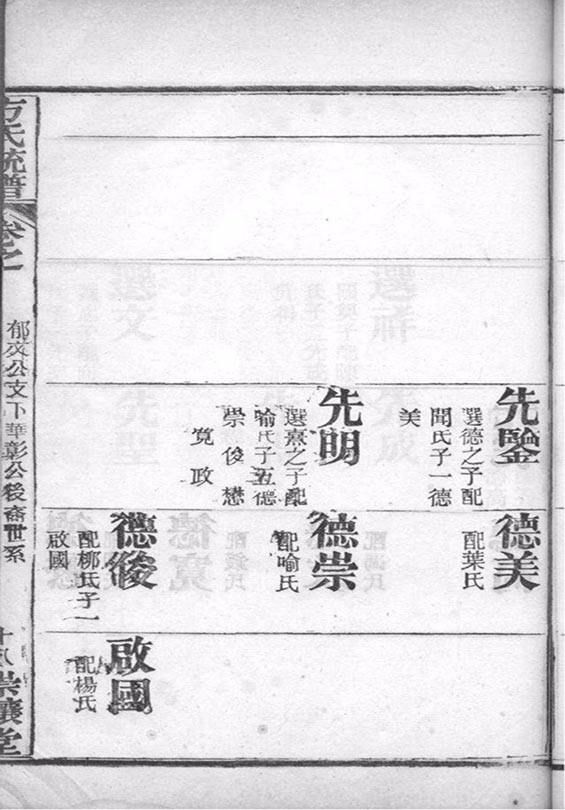 先鑒
選德之子配
聞氏子一德
美
先明
選熹之子配
喻氏子五德
崇俊懋
寬政
德美
配葉氏
德崇
配喻氏
德俊
配柳氏子一
啟國
啟國
配楊氏
方氏統譜
卷之一
郁文公支下華彰公後裔世系
十八
崇讓堂